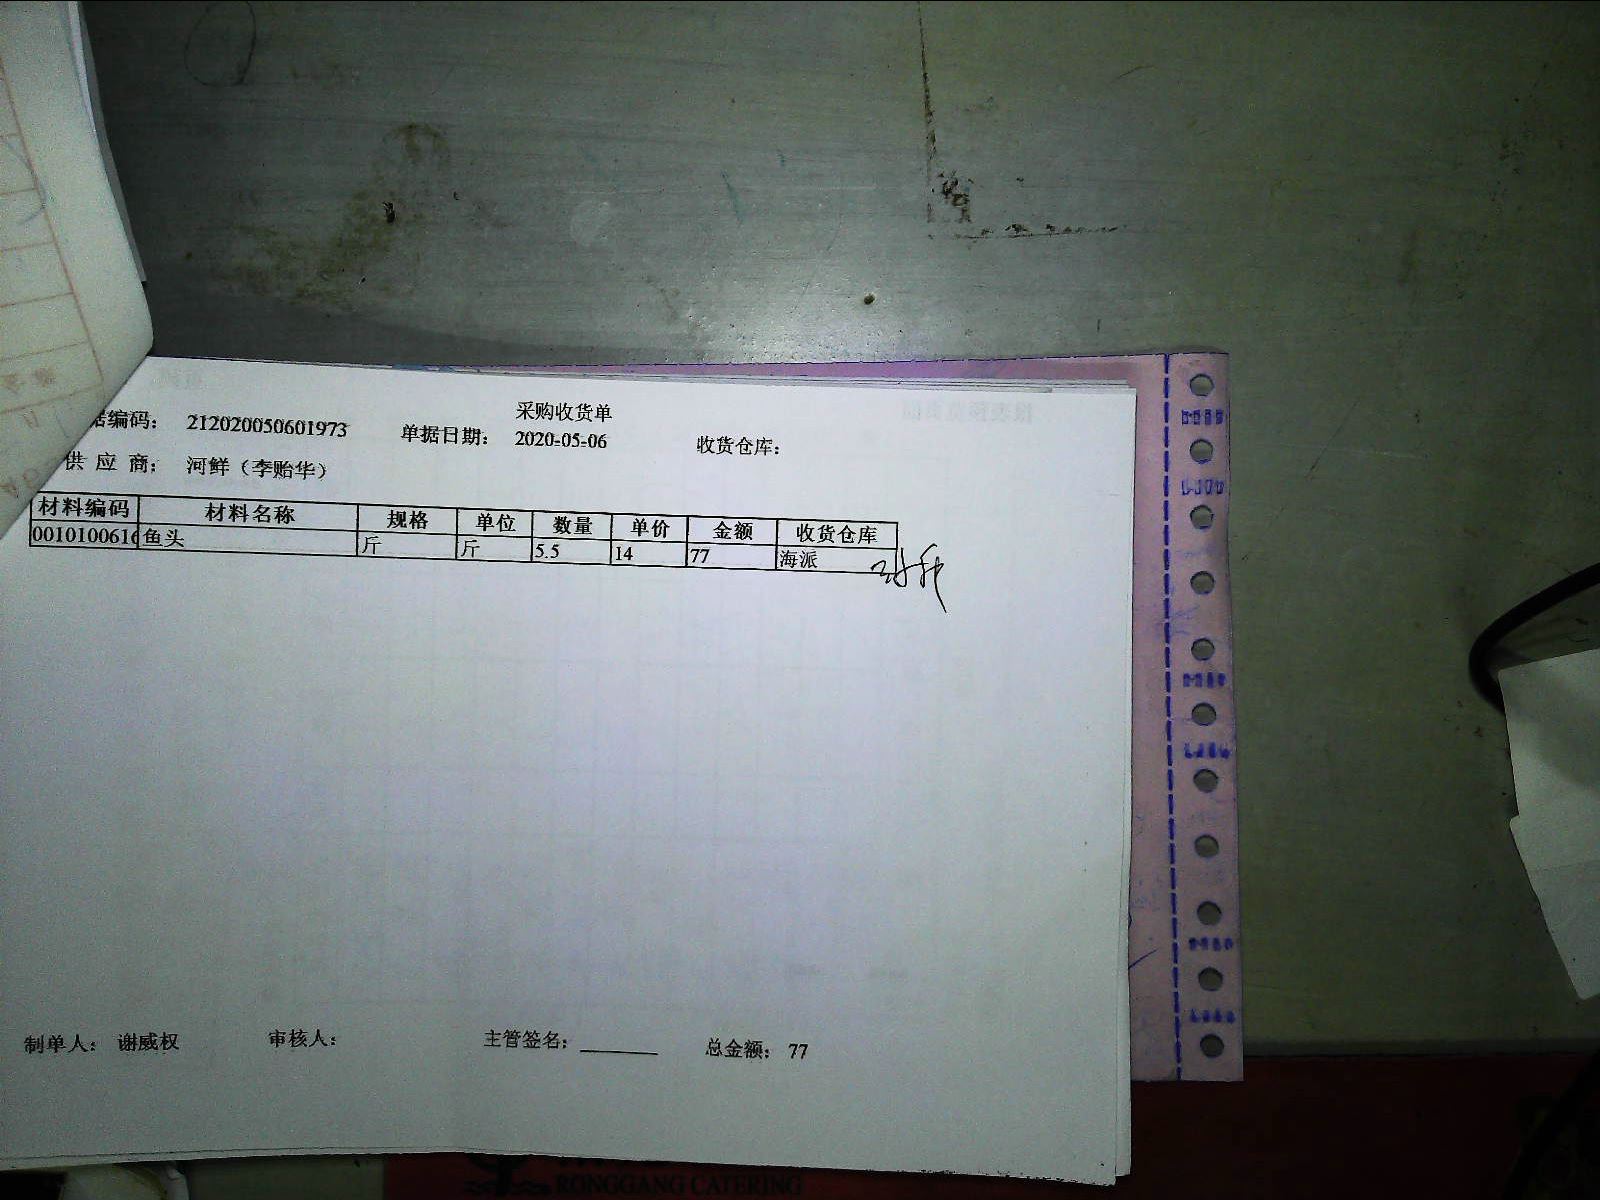 采购收货单
据编码： 212020050601973 单据日期： 2020-05-06 收货仓库：
供 应 商： 河鲜（李贻华）
材料编码 材料名称 规格 单位 数量 单价 金额 收货仓库
0010100616 鱼头 斤 斤 5.5 14 77 海派
制单人： 谢威权 审核人： 主管签名： 总金额： 77
RONGGANG CATERING